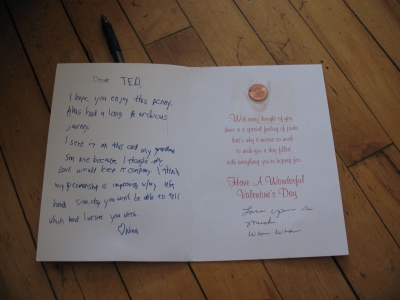 Dear TED
I hope you enjoy this penny.
It has had a long & arduous
journey.
I sent it in this card my grandma
sent me because I thought
would keep it company. I think
my penmanship is improving w/my left
hand. One day you won't be able to tell
which hand I wrote you with.
♡ Nora
With every thought of you
there is a special feeling of pride,
that's why it means so much
to wish you a day filled
with everything you're hoping for.
Have A Wonderful
Valentine's Day
Love